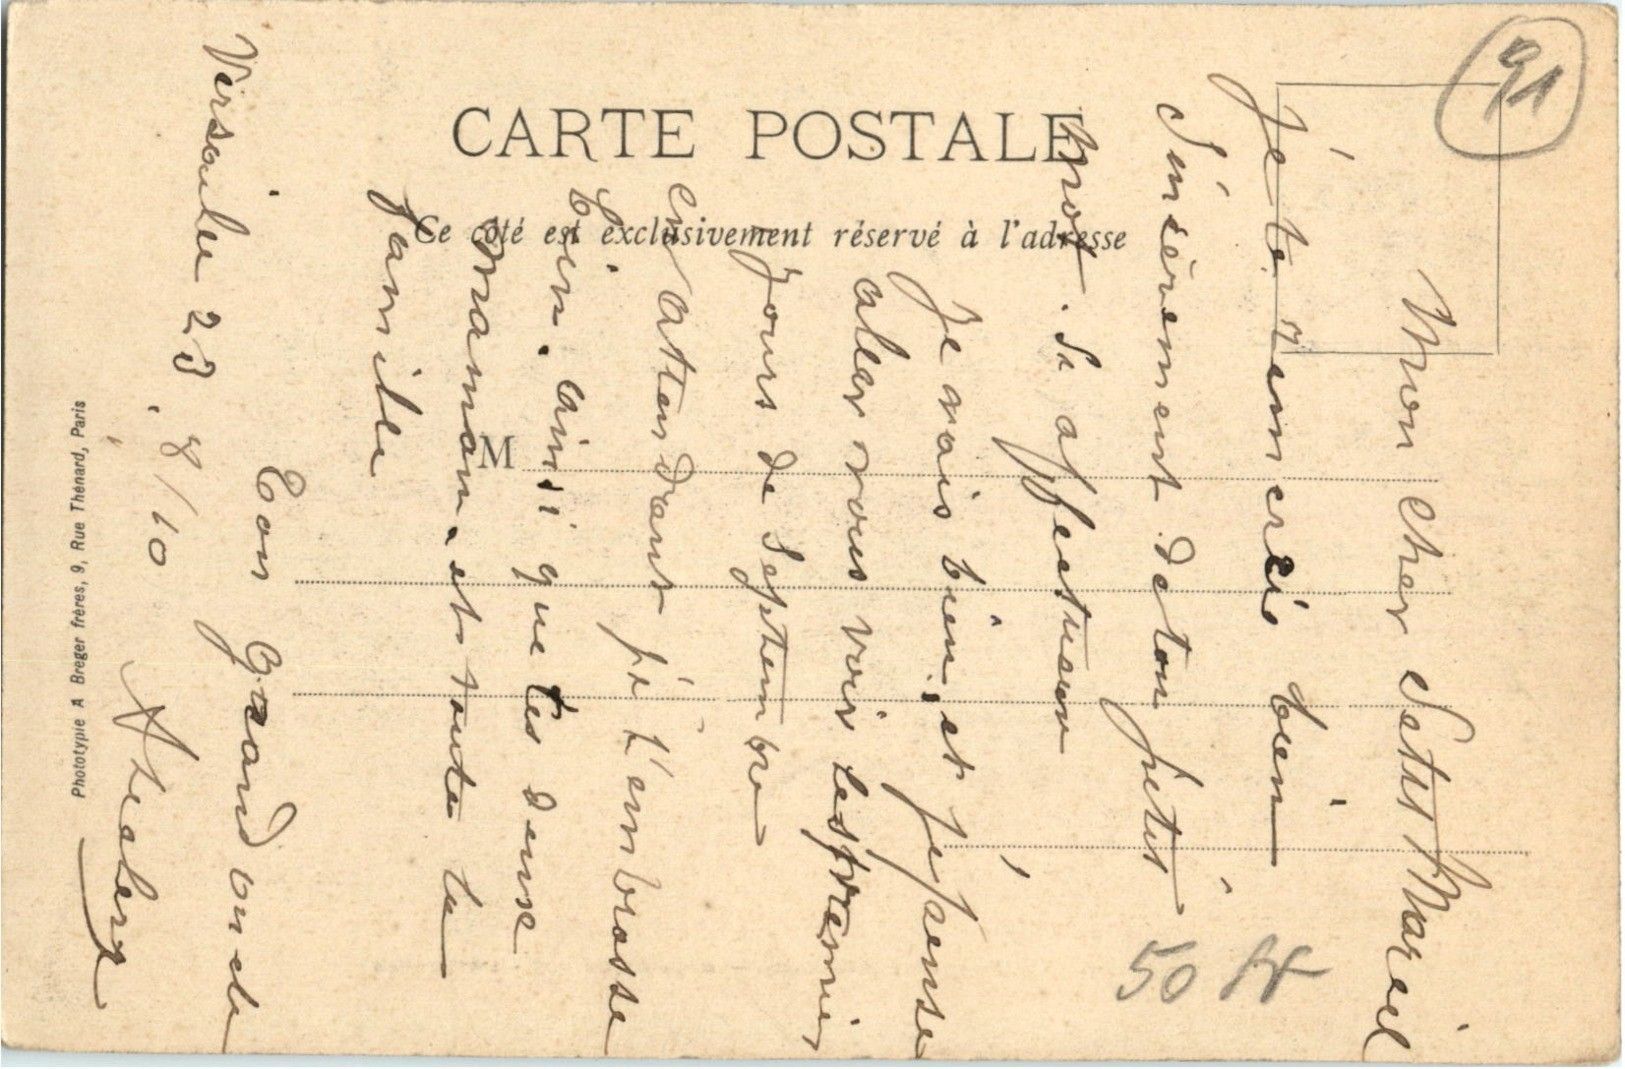 CARTE POSTALE
Ce côté est exclusivement réservé à l'adresse
M
Phototypie A Breger frères, 9, Rue Thénard, Paris
91
50
Mon cher
Je te remercie bien
Sinsèrement de ton petit
mot. Si affectueux
Je vais bien, et je pense
aler vous voir les premier
jours de Septembre
en attendant je t'embrasse
bien. ainsi que tes deux
maman. et toute la
famille
Ton grand oncle
28.8/10